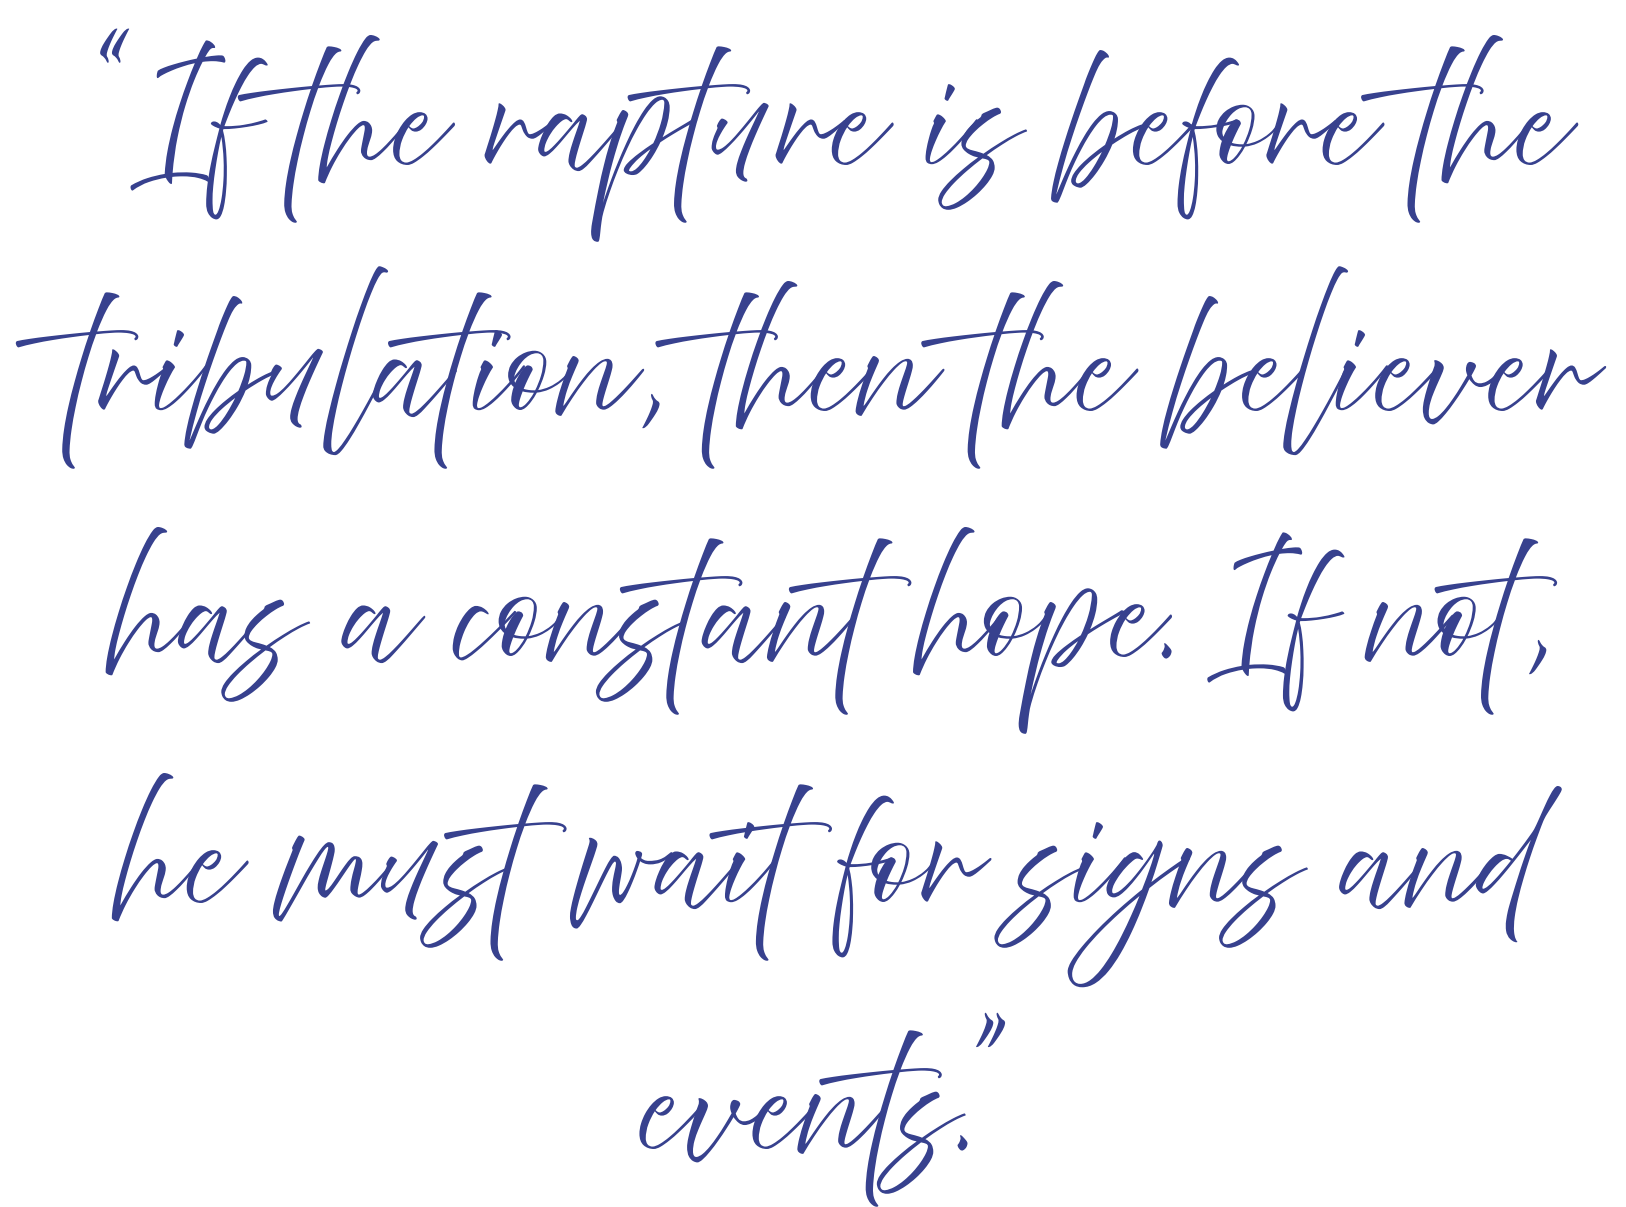 “If the rapture is before the
tribulation, then the believer
has a constant hope. If not,
he must wait for signs and
events.”